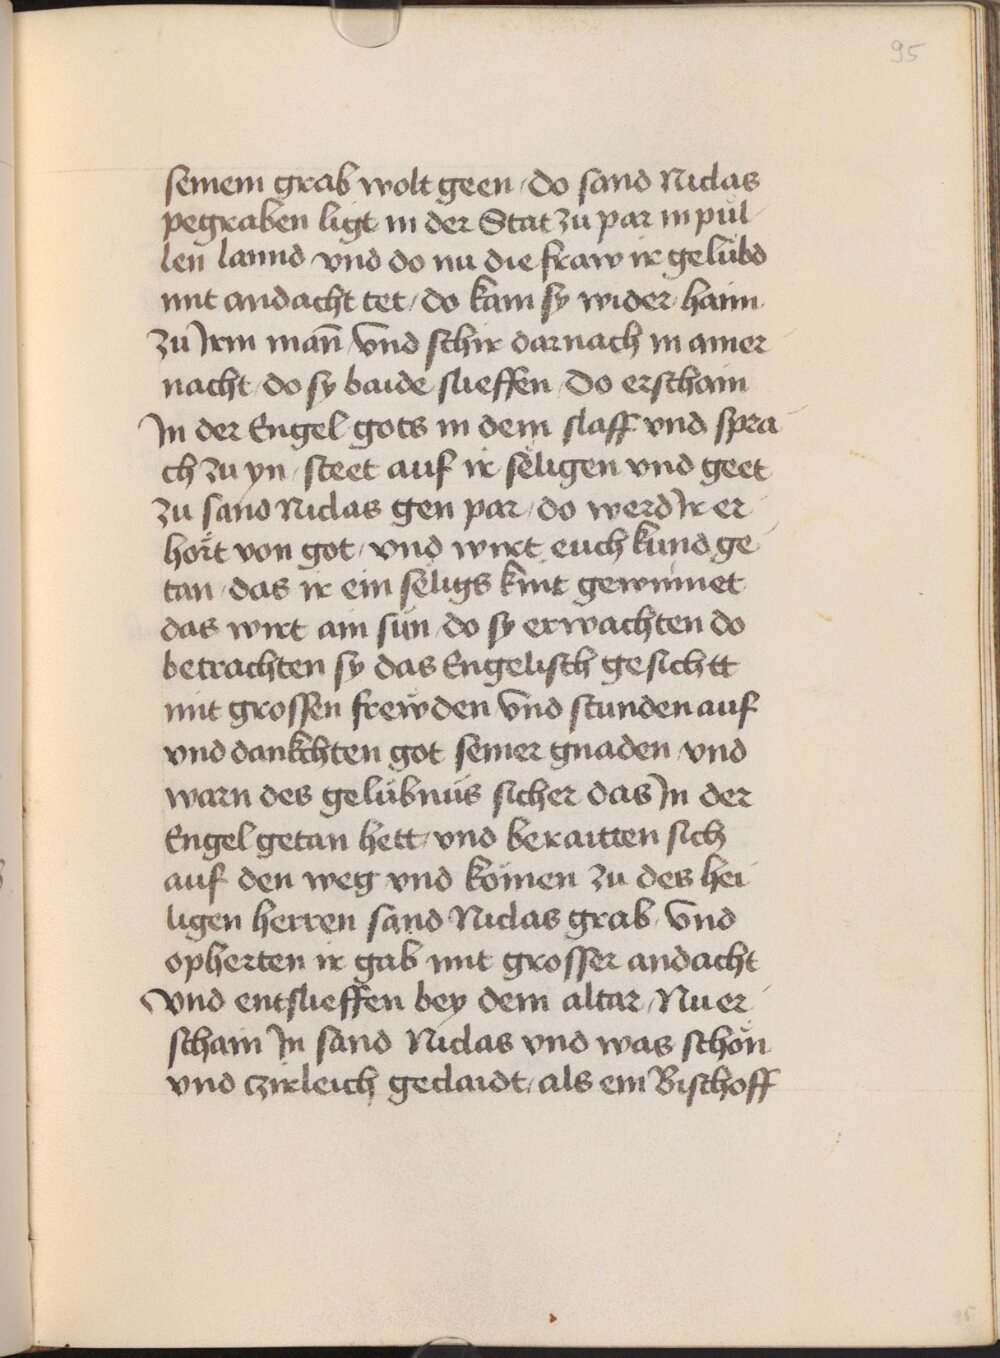 95
seinem grab wolt geen / do sand Niclas
pegraben ligt in der Stat zu par in pül
len lannd vnd do nu die fraw ir gelübd
mit andacht tet / do kam sy wider haim
zu Irm mañ / vnd schir darnach in ainer
nacht / do sy baide slieffen / Do erschain
In der Engel gots in dem slaff vnd spra
ch zu yn / steet auf ir sëligen vnd geet
zu sand Niclas gen par / do werd Ir er
hört von got / vnd wirt euch kund ge
tan / das ir ein sëligs kint gewinnet
das wirt ain sün / do sy erwachten do
betrachten sy das Engelisch gesichtt
mit grossen frewden vnd stunden auf
vnd dankchten got seiner gnaden / vnd
warn des gelübnüs sicher das In der
Engel getan hett / vnd beraitten sich
auf den weg vnd kömen zu des hei
ligen herren sand Niclas grab / vnd
opherten ir gab mit grosser andacht
vnd entslieffen bey dem altar / Nu er
schain In sand Niclas vnd was schön
vnd czirleich geclaidt / als ein Bischoff
95